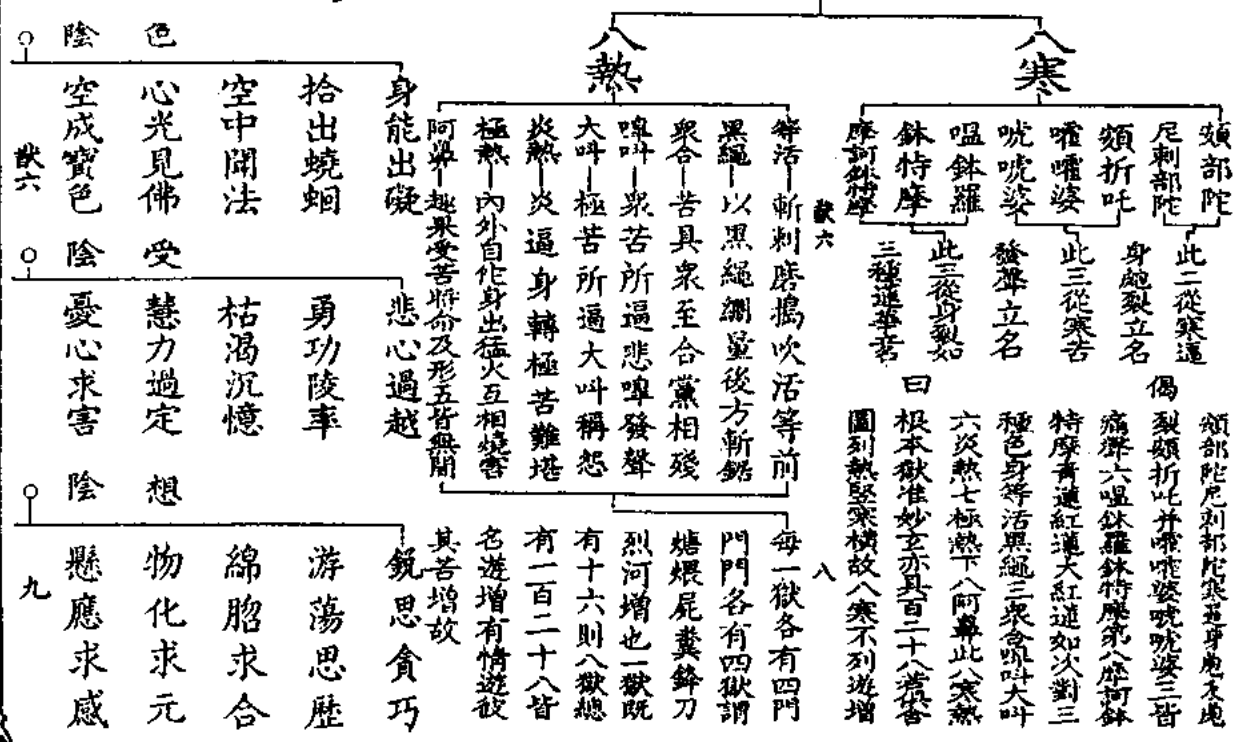 八寒
頞部陀
尼剌部陀
頞折吒
嚯嚯婆
唬唬婆
嗢鉢羅
鉢特摩
摩訶鉢特摩
此二從寒逼
身皰裂立名
此三從寒苦
發聲立名
此三從身裂如
三種蓮華名
偈
曰
頞部陀尼剌部陀寒逼身皰及皰
裂頞折吒并嚯嚯婆唬唬婆三皆
痛聲六嗢鉢羅鉢特摩第八摩訶鉢
特摩青蓮紅蓮大紅蓮如次對三
種色身等活黑繩三衆合嘷叫大叫
六炎熱七極熱下八阿鼻此八寒熱
根本獄准妙玄亦具百二十八舊舍
圖列熱竪寒橫故八寒不列遊增
獄六
八
八熱
等活—斬刺磨搗吹活等前
黑繩—以黑繩絣量後方斬鋸
衆合—苦具衆至合黨相殘
嘷叫—衆苦所逼悲嘷發聲
大叫—極苦所逼大叫稱怨
炎熱—炎逼身轉極苦難堪
極熱—內外自他身出猛火互相燒害
阿鼻—趣果受苦時命及形五皆無間
每一獄各有四門
門門各有四獄謂
煻煨屍糞鋒刀
烈河增也一獄既
有十六則八獄總
有一百二十八皆
名遊增有情遊彼
其苦增故
色陰
身能出礙
拾出蟯蛔
空中聞法
心光見佛
空成寶色
受陰
悲心過越
勇功陵率
枯渴沉憶
慧力過定
憂心求害
想陰
銳思貪巧
游蕩思歷
綿䐇求合
物化求元
懸應求感
獄六
九